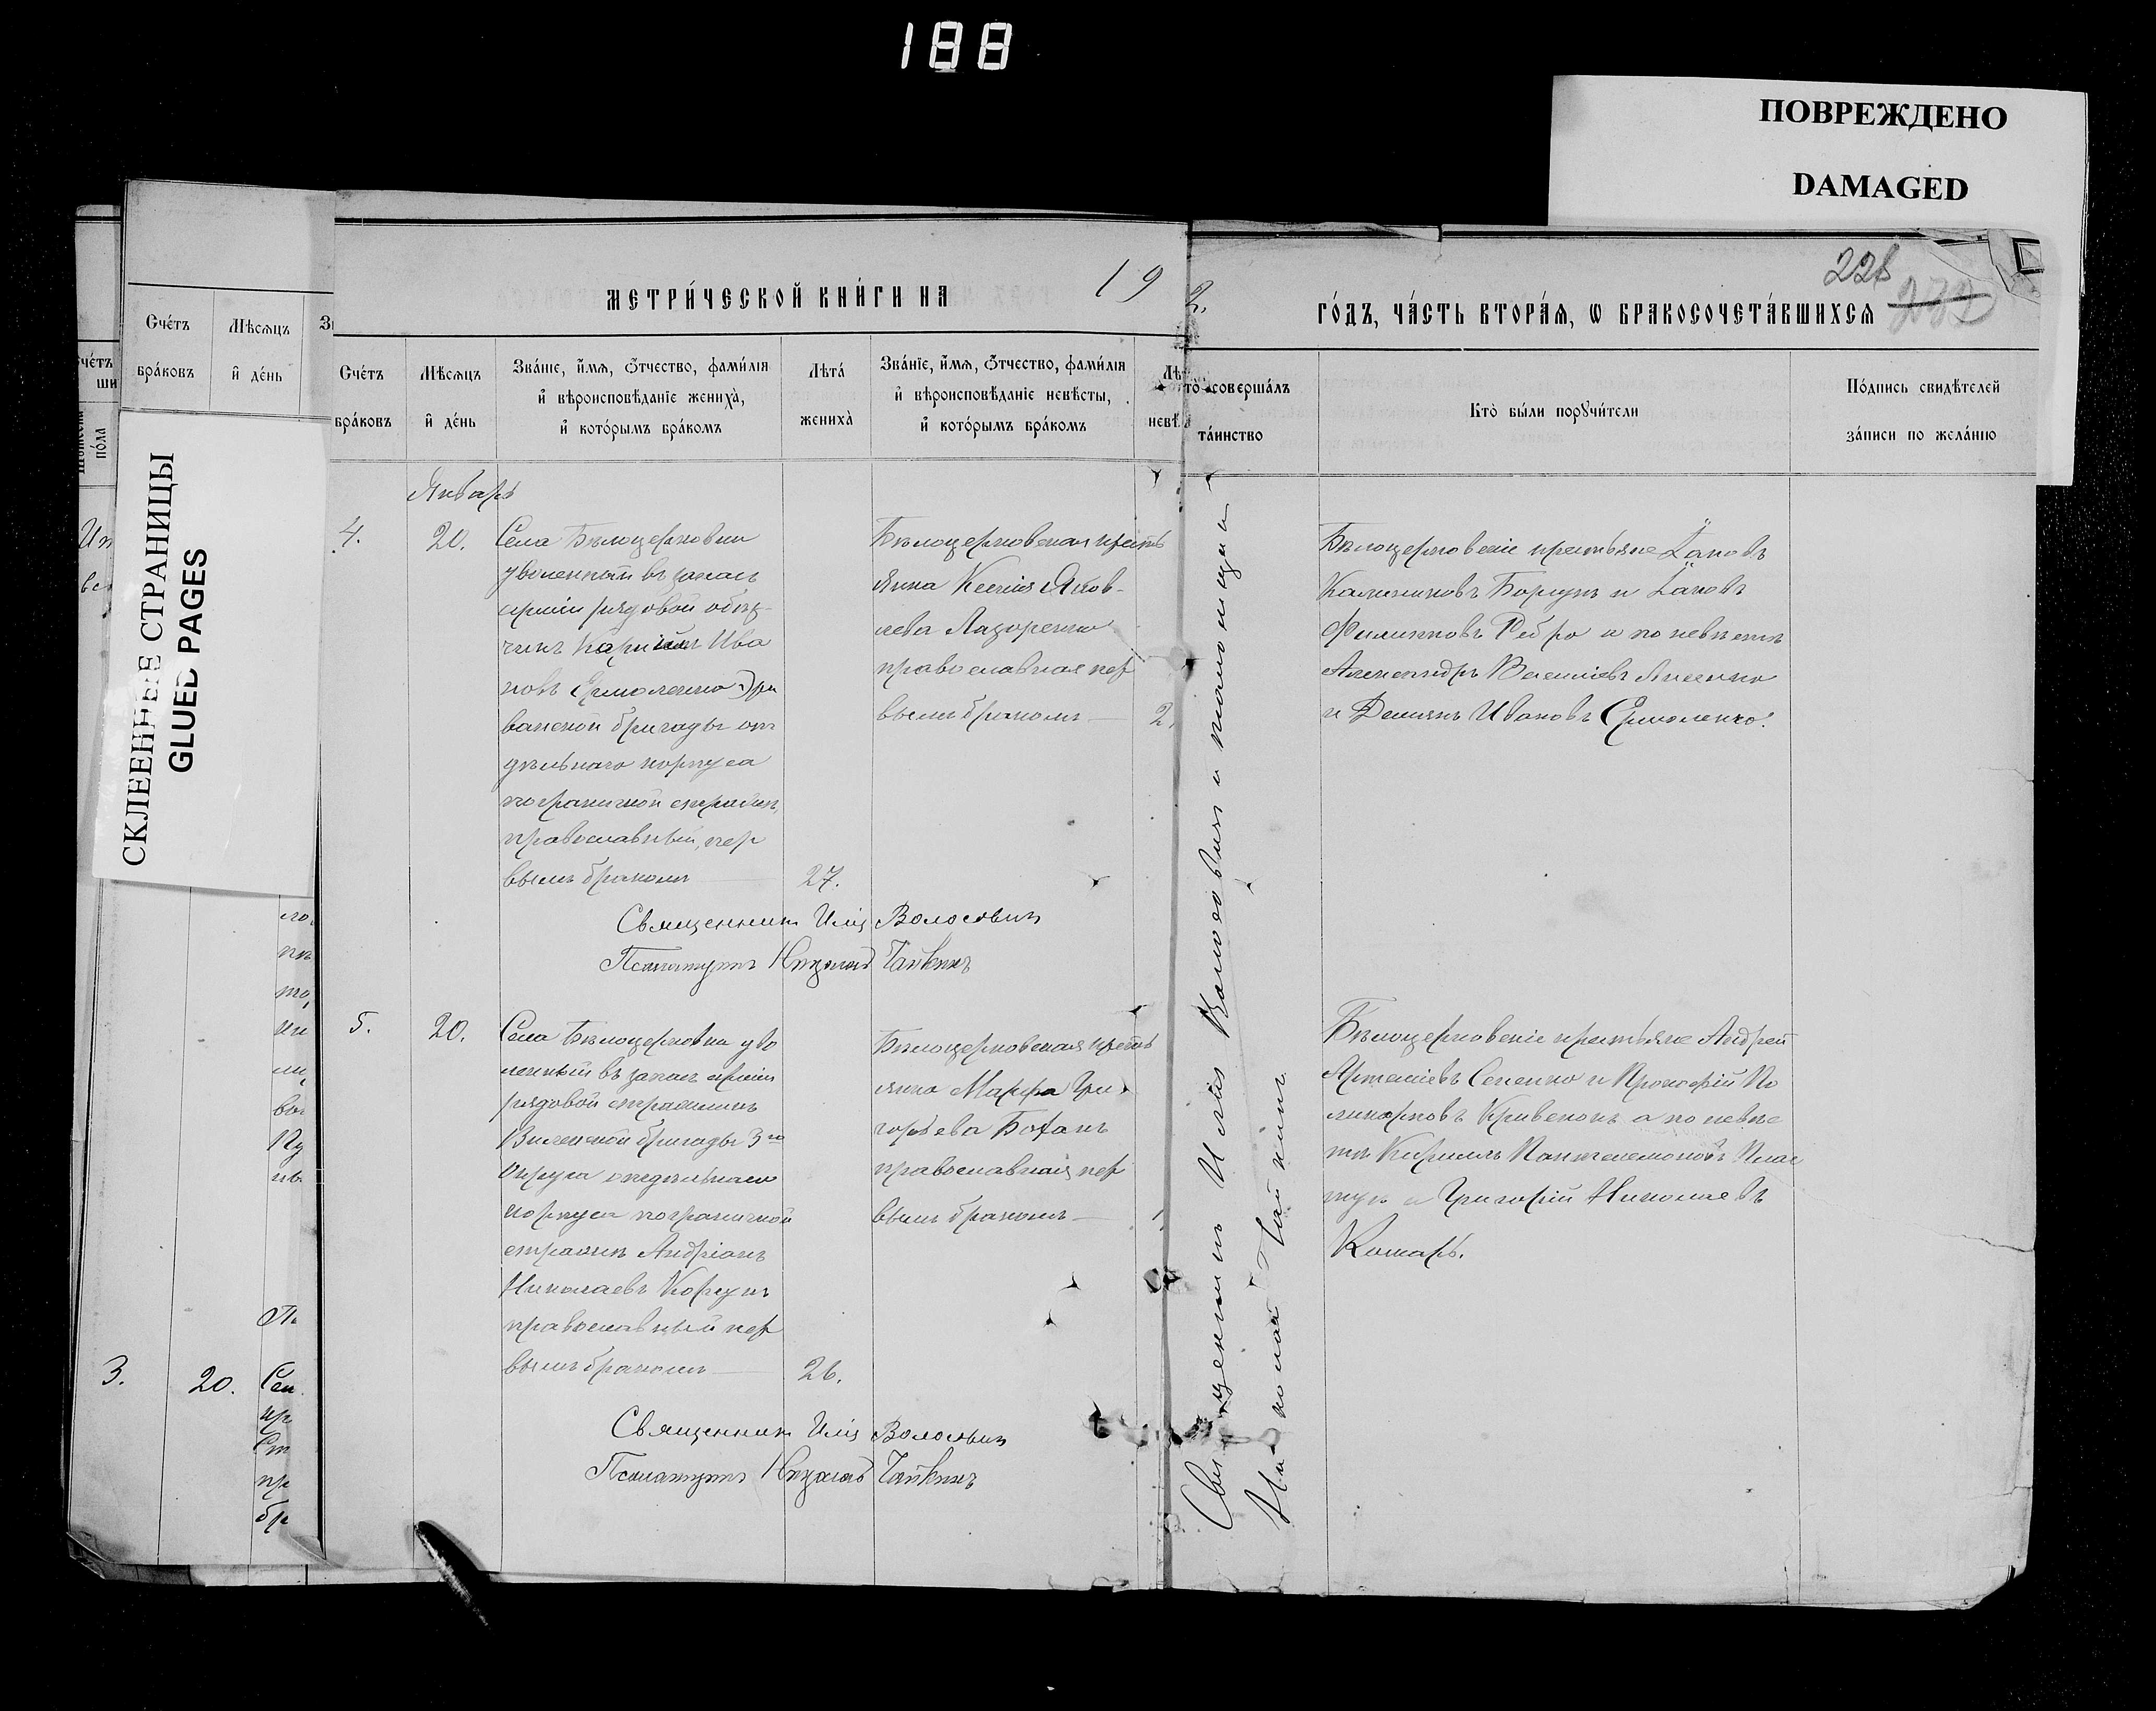 188
ПОВРЕЖДЕНО
DAMAGED
СКЛЕЕННЫЕ СТРАНИЦЫ
GLUED PAGES
Счéтъ
брáковъ
Мѣсяцъ
и҆ дéнь
3.
20.
МЕТРИ́ЧЕСКОЙ КНИ́ГИ НА
19
2.
ГО́ДЪ, ЧА́СТЬ ВТОРА́Я, Ѡ БРАКОСОЧЕТА́ВШИХСЯ
226
Счéтъ
брáковъ
Мѣсяцъ
и҆ дéнь
Звáнїе, и҆́мя, ѻ҆́тчество, фами́лїя
и҆ вѣроисповѣ́данїе женихà,
и҆ кото́рымъ брáкомъ
Лѣтá
женихà
Звáнїе, и҆́мя, ѻ҆́тчество, фами́лїя
и҆ вѣроисповѣ́данїе невѣ́сты,
и҆ кото́рымъ брáкомъ
Лѣ
невѣ́
то̀ совершáлъ
тáинство
Ктò бы́ли порꙋчи́тели
По́дпись свидѣ́телей
зáписи по желáнїю
Январь
4.
20.
Села Бѣлоцерковки
уволенный въ запасъ
арміи рядовой объѣз-
чикъ Кирилъ Ива
новъ Ермоленко Эри
ванской бригады от
дѣльнаго корпуса
пограничной стражи,
православный, пер
вымъ бракомъ
27.
Бѣлоцерковская кресть
янка Ксенія Яков-
лева Лазоренко
православная пер
вымъ бракомъ
2
Бѣлоцерковскіе крестьяне Іаковъ
Калиниковъ Борунъ и Іаковъ
Филиповъ Ребро а по невѣстѣ
Александръ Василіевъ Лисенко
и Демьянъ Ивановъ Ермоленко.
Священникъ Илія Волосовичъ
Псаломщикъ Николай Чайкинъ
5.
20.
Села Бѣлоцерковки уво
ленный въ запасъ арміи
рядовой стражникъ
Виленской бригады 3го
округа отдѣльнаго
корпуса пограничной
стражи Андріанъ
Николаевъ Коржъ
православный пер
вымъ бракомъ
26.
Бѣлоцерковская кресть
янка Марфа Гри
горьева Боханъ
православная пер
вымъ бракомъ
1
Бѣлоцерковскіе крестьяне Андрей
Артеміевъ Сененко и Прокофій По
ликарповъ Кривенокъ а по невѣс
тѣ Кирилъ Пантелемоновъ Плас
тунъ и Григорій Николаевъ
Комаръ.
Священникъ Илія Волосовичъ
Псаломщикъ Николай Чайкинъ
Священникъ Илія Волосовичъ и псаломщикъ
Николай Чайкинъ